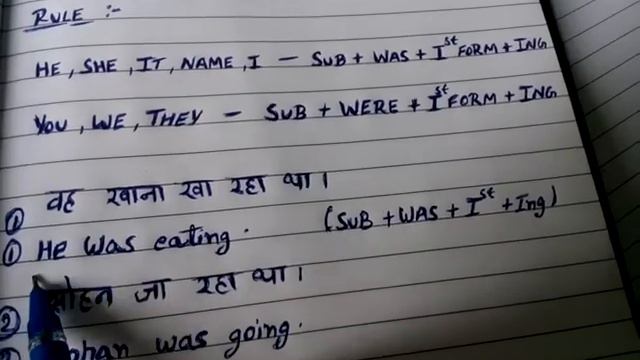 RULE :-
HE, SHE, IT, NAME, I – SUB + WAS + Ist FORM + ING
YOU, WE, THEY – SUB + WERE + Ist FORM + ING
① वह खाना खा रहा था।
① He was eating. (SUB + WAS + Ist + Ing)
② मोहन जा रहा था।
was going.